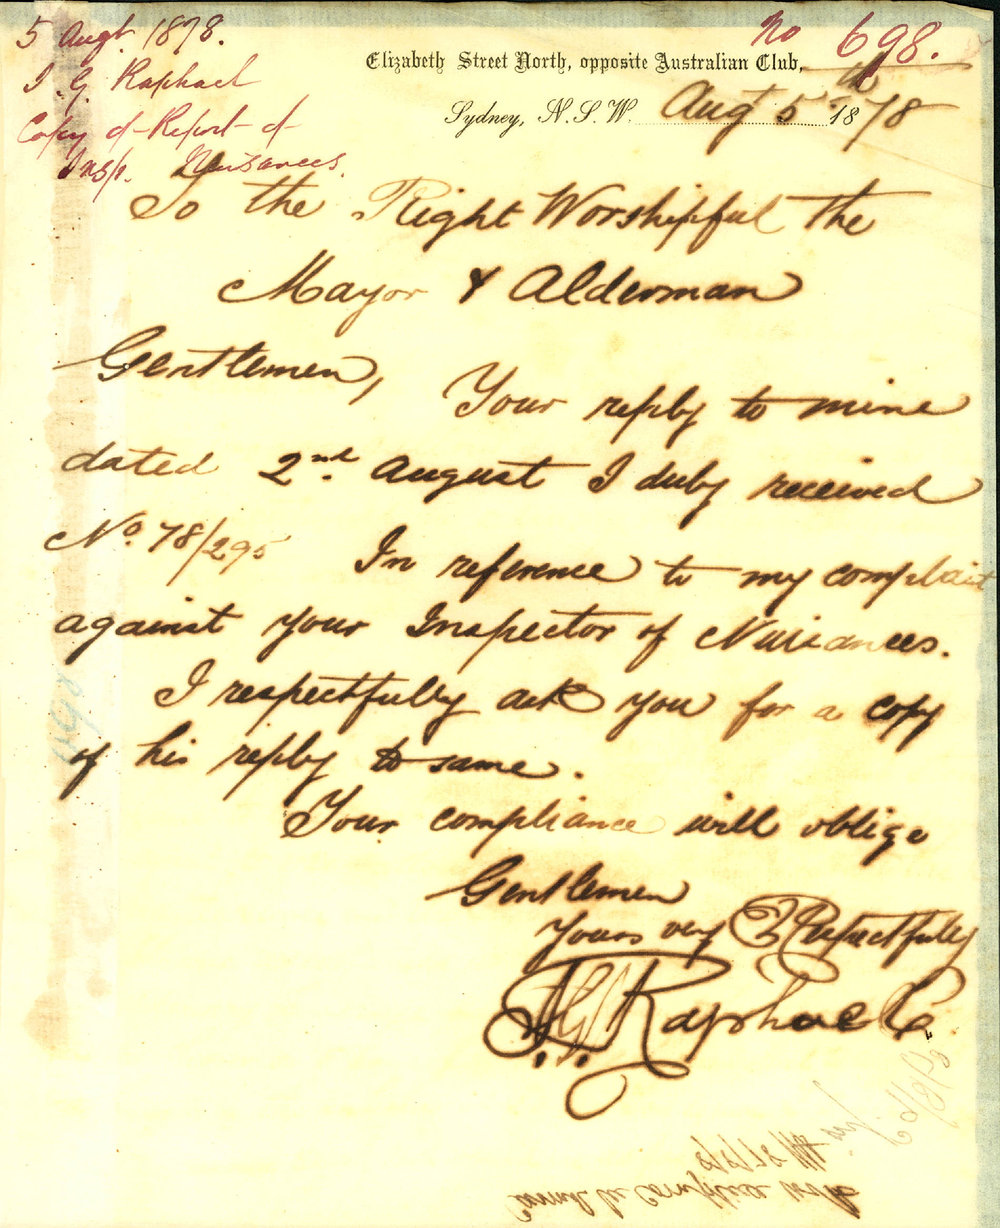 5 Augt. 1878.
J. G. Raphael
Copy of Report of
Insp. Nuisances.
No 698.
Elizabeth Street North, opposite Australian Club,
Sydney, N.S.W. Aug 5th 1878
To the Right Worshipful the
Mayor & Alderman
Gentlemen, Your reply to mine
dated 2nd. August I duly received
No. 78/295 In reference to my complaint
against your Inspector of Nuisances.
I respectfully ask you for a copy
of his reply to same.
Your compliance will oblige
Gentlemen
Yours very Respectfully
J.G. Raphael
698
Cannot be complied with